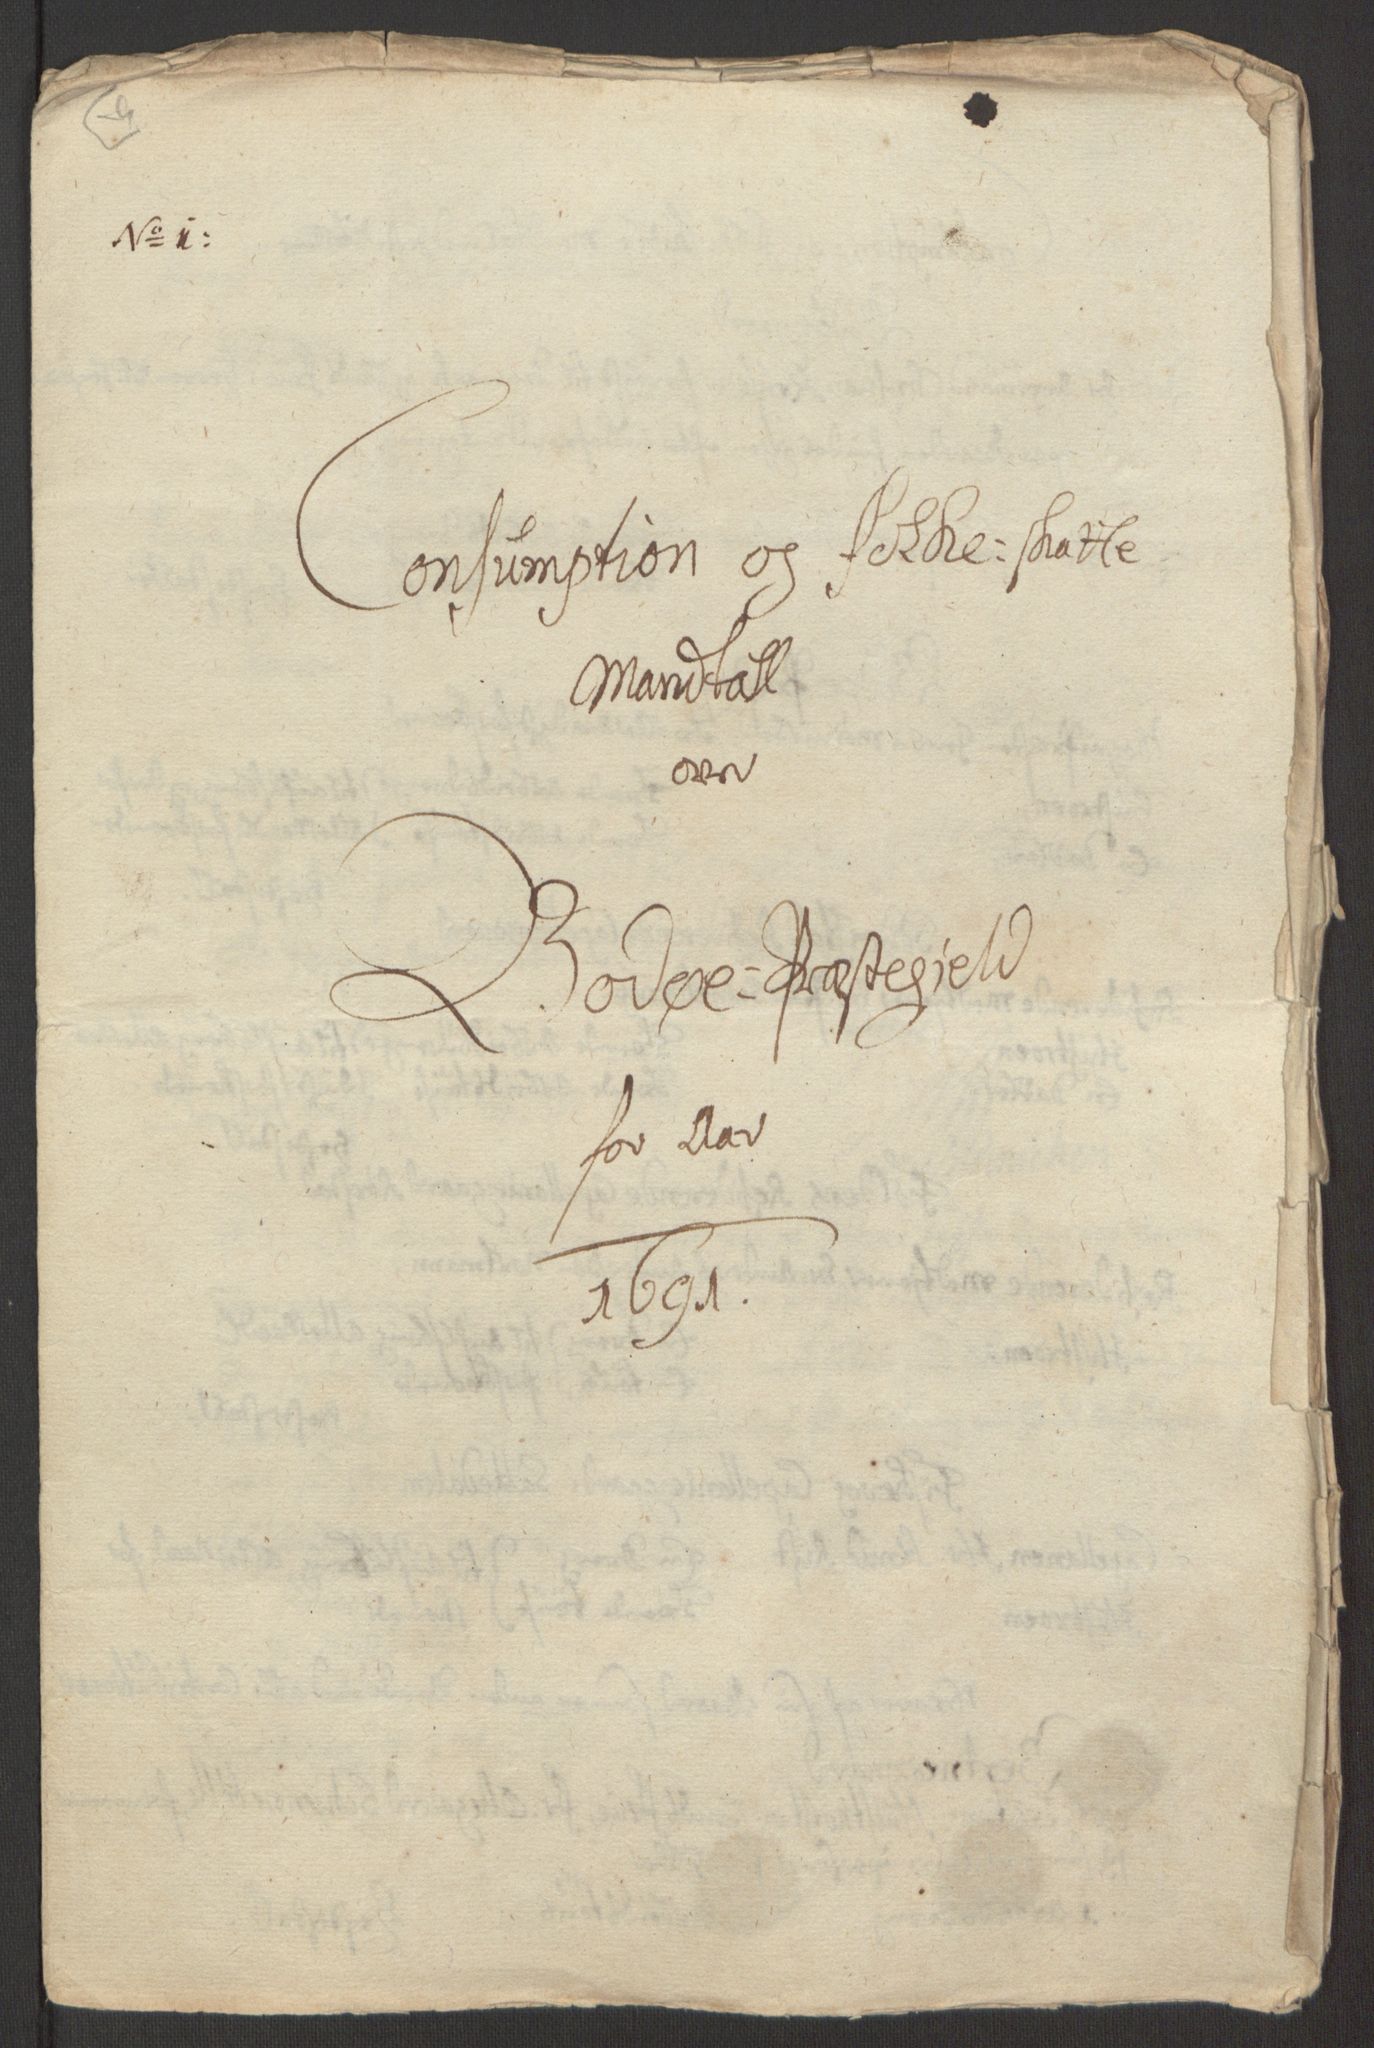 No 1:
Consumption og Folke-skatte
Mandtall
over
Bodøe-Præstegield
for Aar
1691.